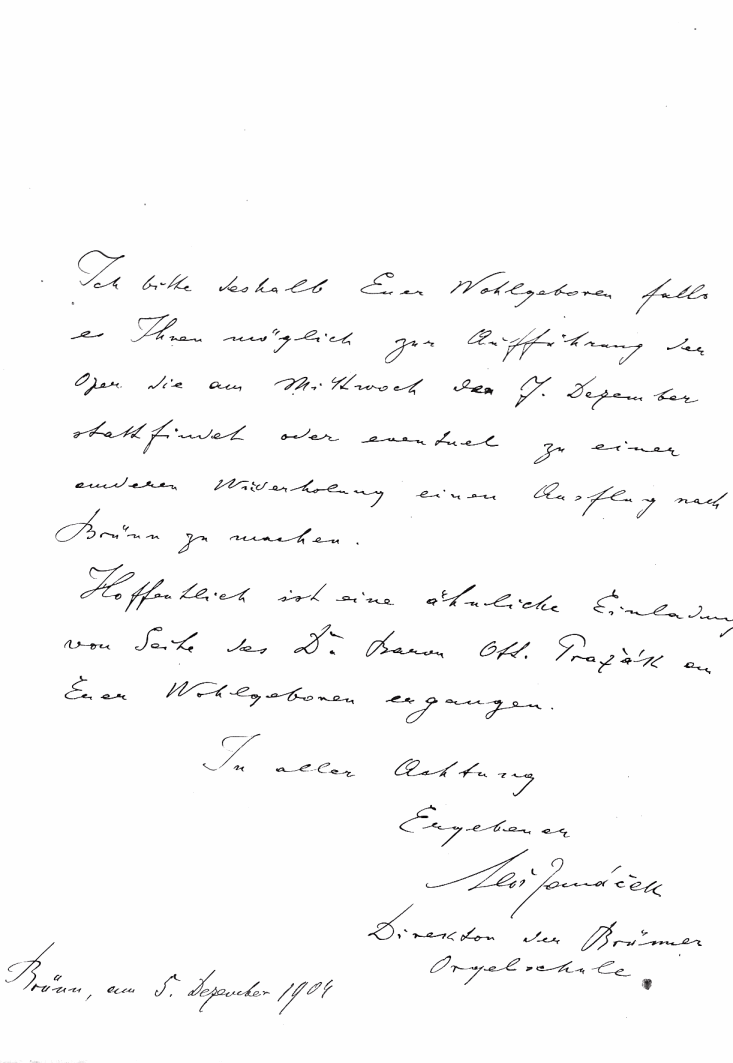 Ich bitte deshalb Euer Wohlgeboren falls
es Ihnen möglich zur Aufführung der
Oper die am Mittwoch den 7. Dezember
stattfindet oder eventuel zu einer
anderen Widerholung einen Ausflug nach
Brünn zu machen.
Hoffentlich ist eine ähnliche Einladung
von Seite des Dr. Baron Ott. Pražák an
Euer Wohlgeboren ergangen.
In aller Achtung
Ergebener
Leoš Janáček
Direktor der Brünner
Orgelschule.
Brünn, am 5. Dezember 1904